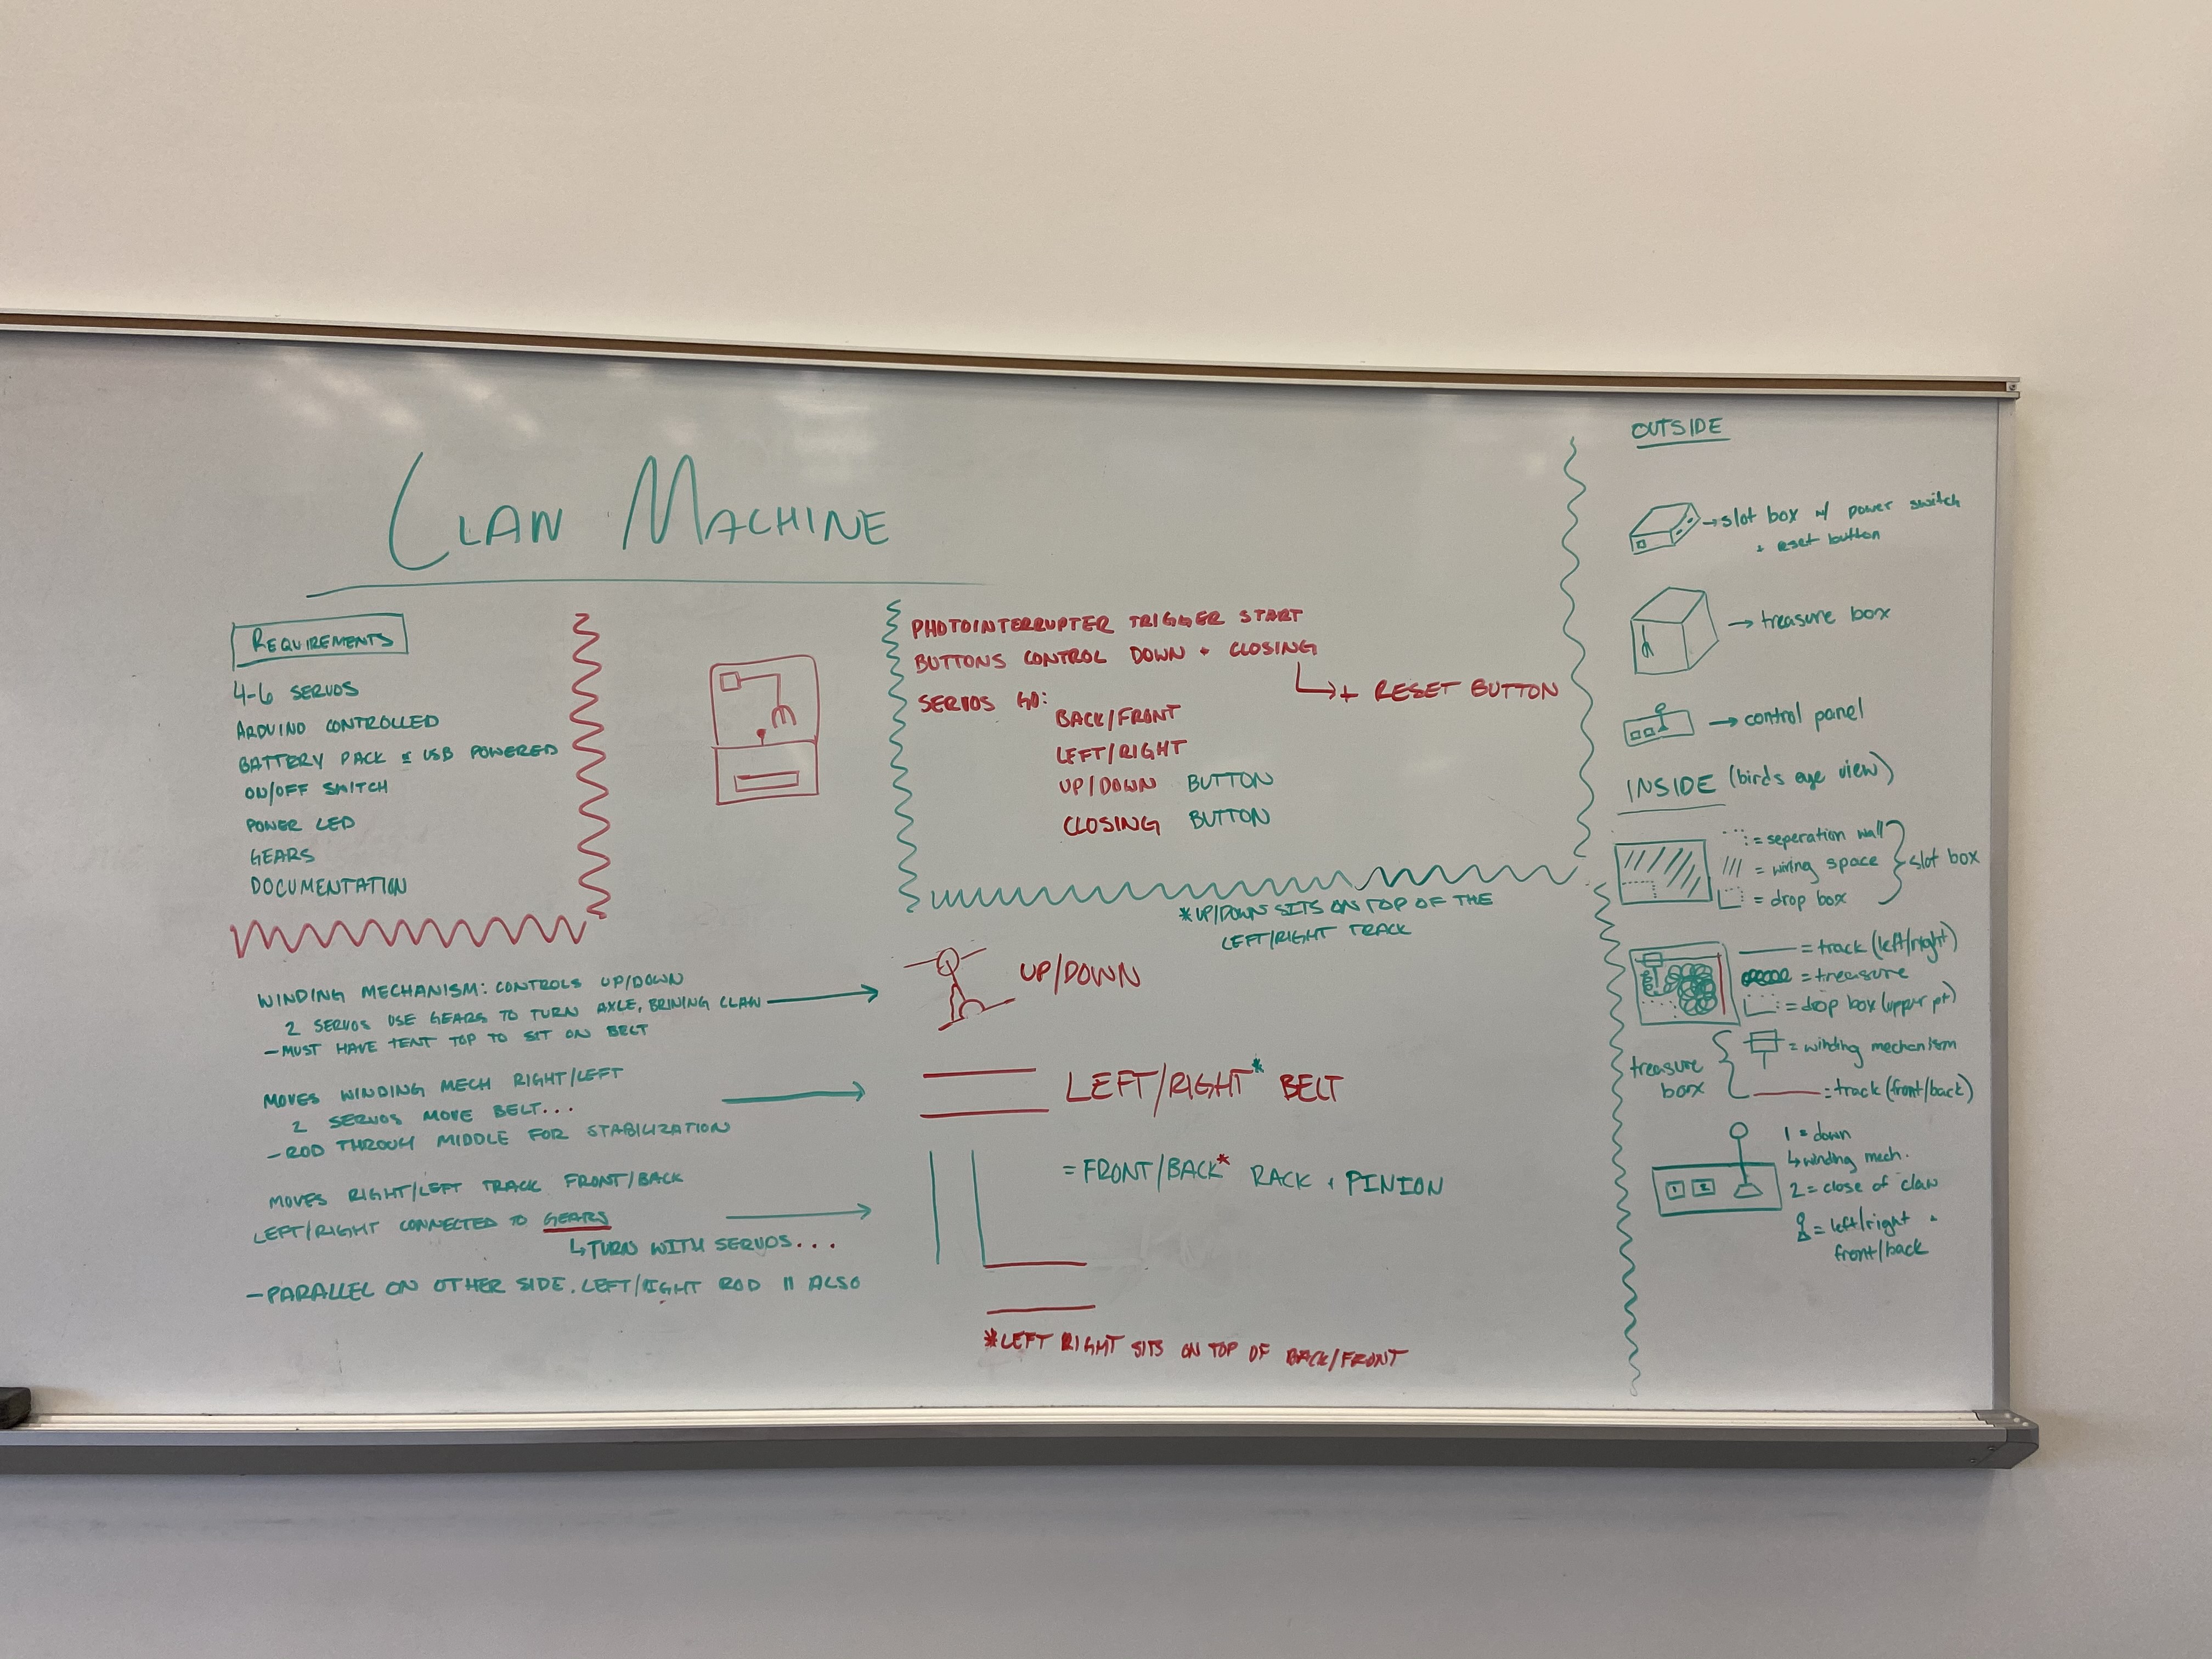 CLAW MACHINE
REQUIREMENTS
4-6 SERVOS
ARDUINO CONTROLLED
BATTERY PACK USB POWERED
ON/OFF SWITCH
POWER LED
GEARS
DOCUMENTATION
PHOTOINTERRUPTER TRIGGER START
BUTTONS CONTROL DOWN + CLOSING
+ RESET BUTTON
SERVOS GO:
BACK/FRONT
LEFT/RIGHT
UP/DOWN BUTTON
CLOSING BUTTON
*UP/DOWN SITS ON TOP OF THE
LEFT/RIGHT TRACK
WINDING MECHANISM: CONTROLS UP/DOWN
2 SERVOS USE GEARS TO TURN AXLE, BRINING CLAW
- MUST HAVE TENT TOP TO SIT ON BELT
UP/DOWN
MOVES WINDING MECH RIGHT/LEFT
2 SERVOS MOVE BELT...
- ROD THROUGH MIDDLE FOR STABILIZATION
LEFT/RIGHT* BELT
MOVES RIGHT/LEFT TRACK FRONT/BACK
LEFT/RIGHT CONNECTED TO GEARS
↳ TURN WITH SERVOS...
- PARALLEL ON OTHER SIDE. LEFT/RIGHT ROD || ALSO
= FRONT/BACK* RACK + PINION
*LEFT RIGHT SITS ON TOP OF BACK/FRONT
OUTSIDE
→ slot box w/ power switch
+ reset button
→ treasure box
→ control panel
INSIDE (birds eye view)
= seperation wall
= wiring space
= drop box
slot box
= track (left/right)
= treasure
= drop box (upper pt)
= winding mechanism
= track (front/back)
treasure
box
1 2
1 = down
↳ winding mech.
2 = close of claw
= left/right +
front/back